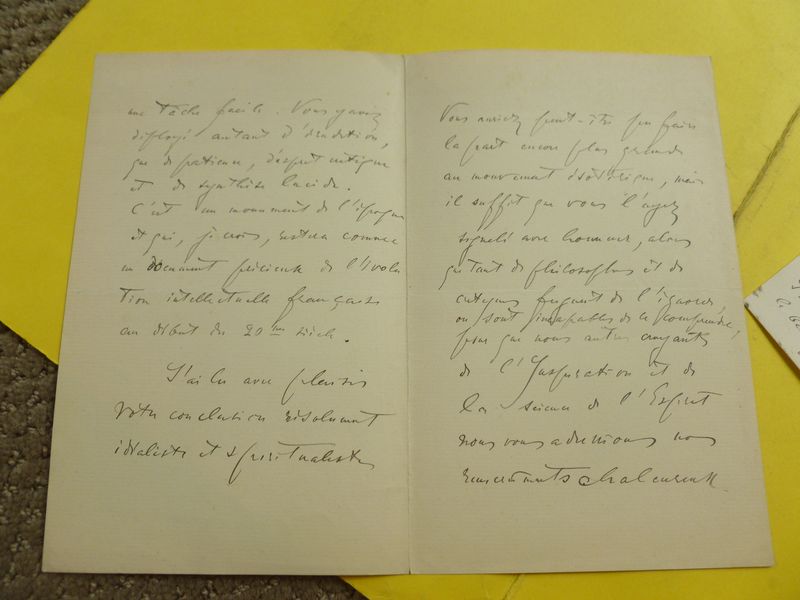 une tâche facile. Vous y avez
déployé autant d'érudition,
que de patience, d'esprit critique
et de synthèse lucide.
C'est un monument de l'époque
et qui, je crois, restera comme
un document précieux de l'Évolu
tion intellectuelle française
au début du 20me siècle.
J'ai lu avec plaisir
votre conclusion résolument
idéaliste et spiritualiste
Vous auriez peut-être pu faire
la part encore plus grande
au mouvement ésotérique, mais
il suffit que vous l'ayez
signalé avec honneur, alors
que tant de philosophes et de
critiques feignent de l'ignorer,
ou sont incapables de le comprendre,
pour que nous autres croyants
de l'Inspiration et de
la Science de l'Esprit
nous vous adressions nos
remerciements chaleureux.